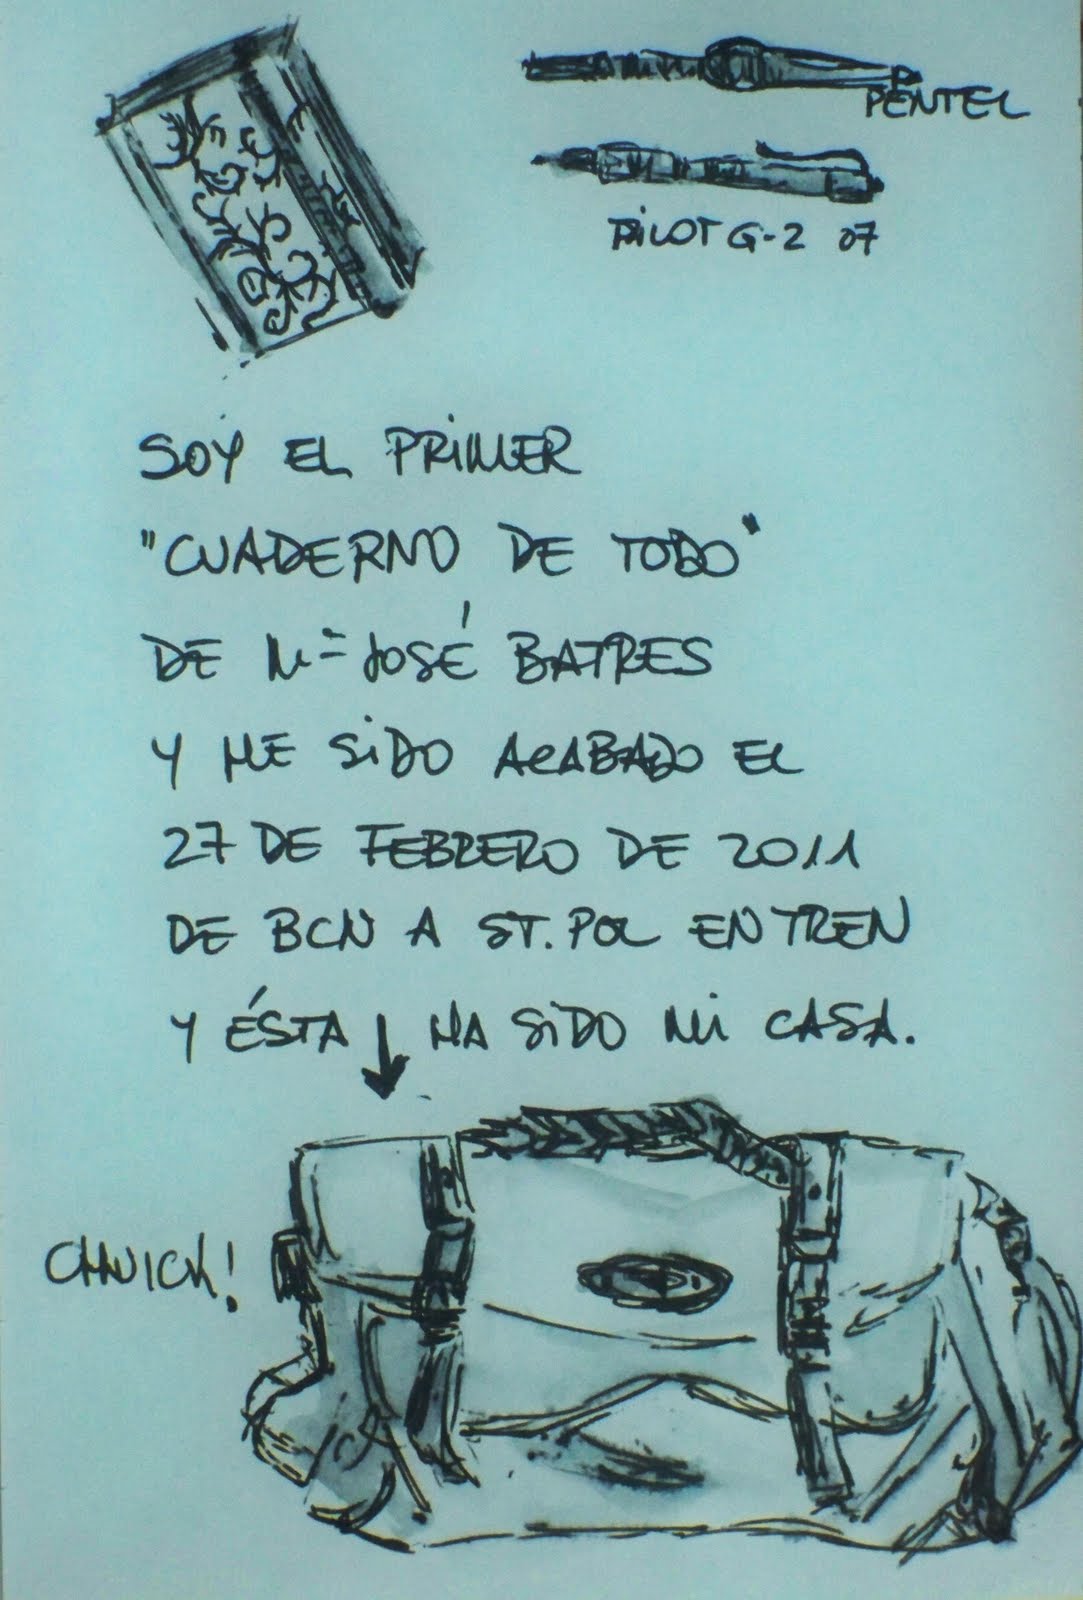 PENTEL
PILOT G-2 07
SOY EL PRIMER
"CUADERNO DE TODO"
DE Mª JOSÉ BATRES
Y HE SIDO ACABADO EL
27 DE FEBRERO DE 2011
DE BCN A ST. POL EN TREN
Y ÉSTA ↓ HA SIDO MI CASA.
CHUICK!